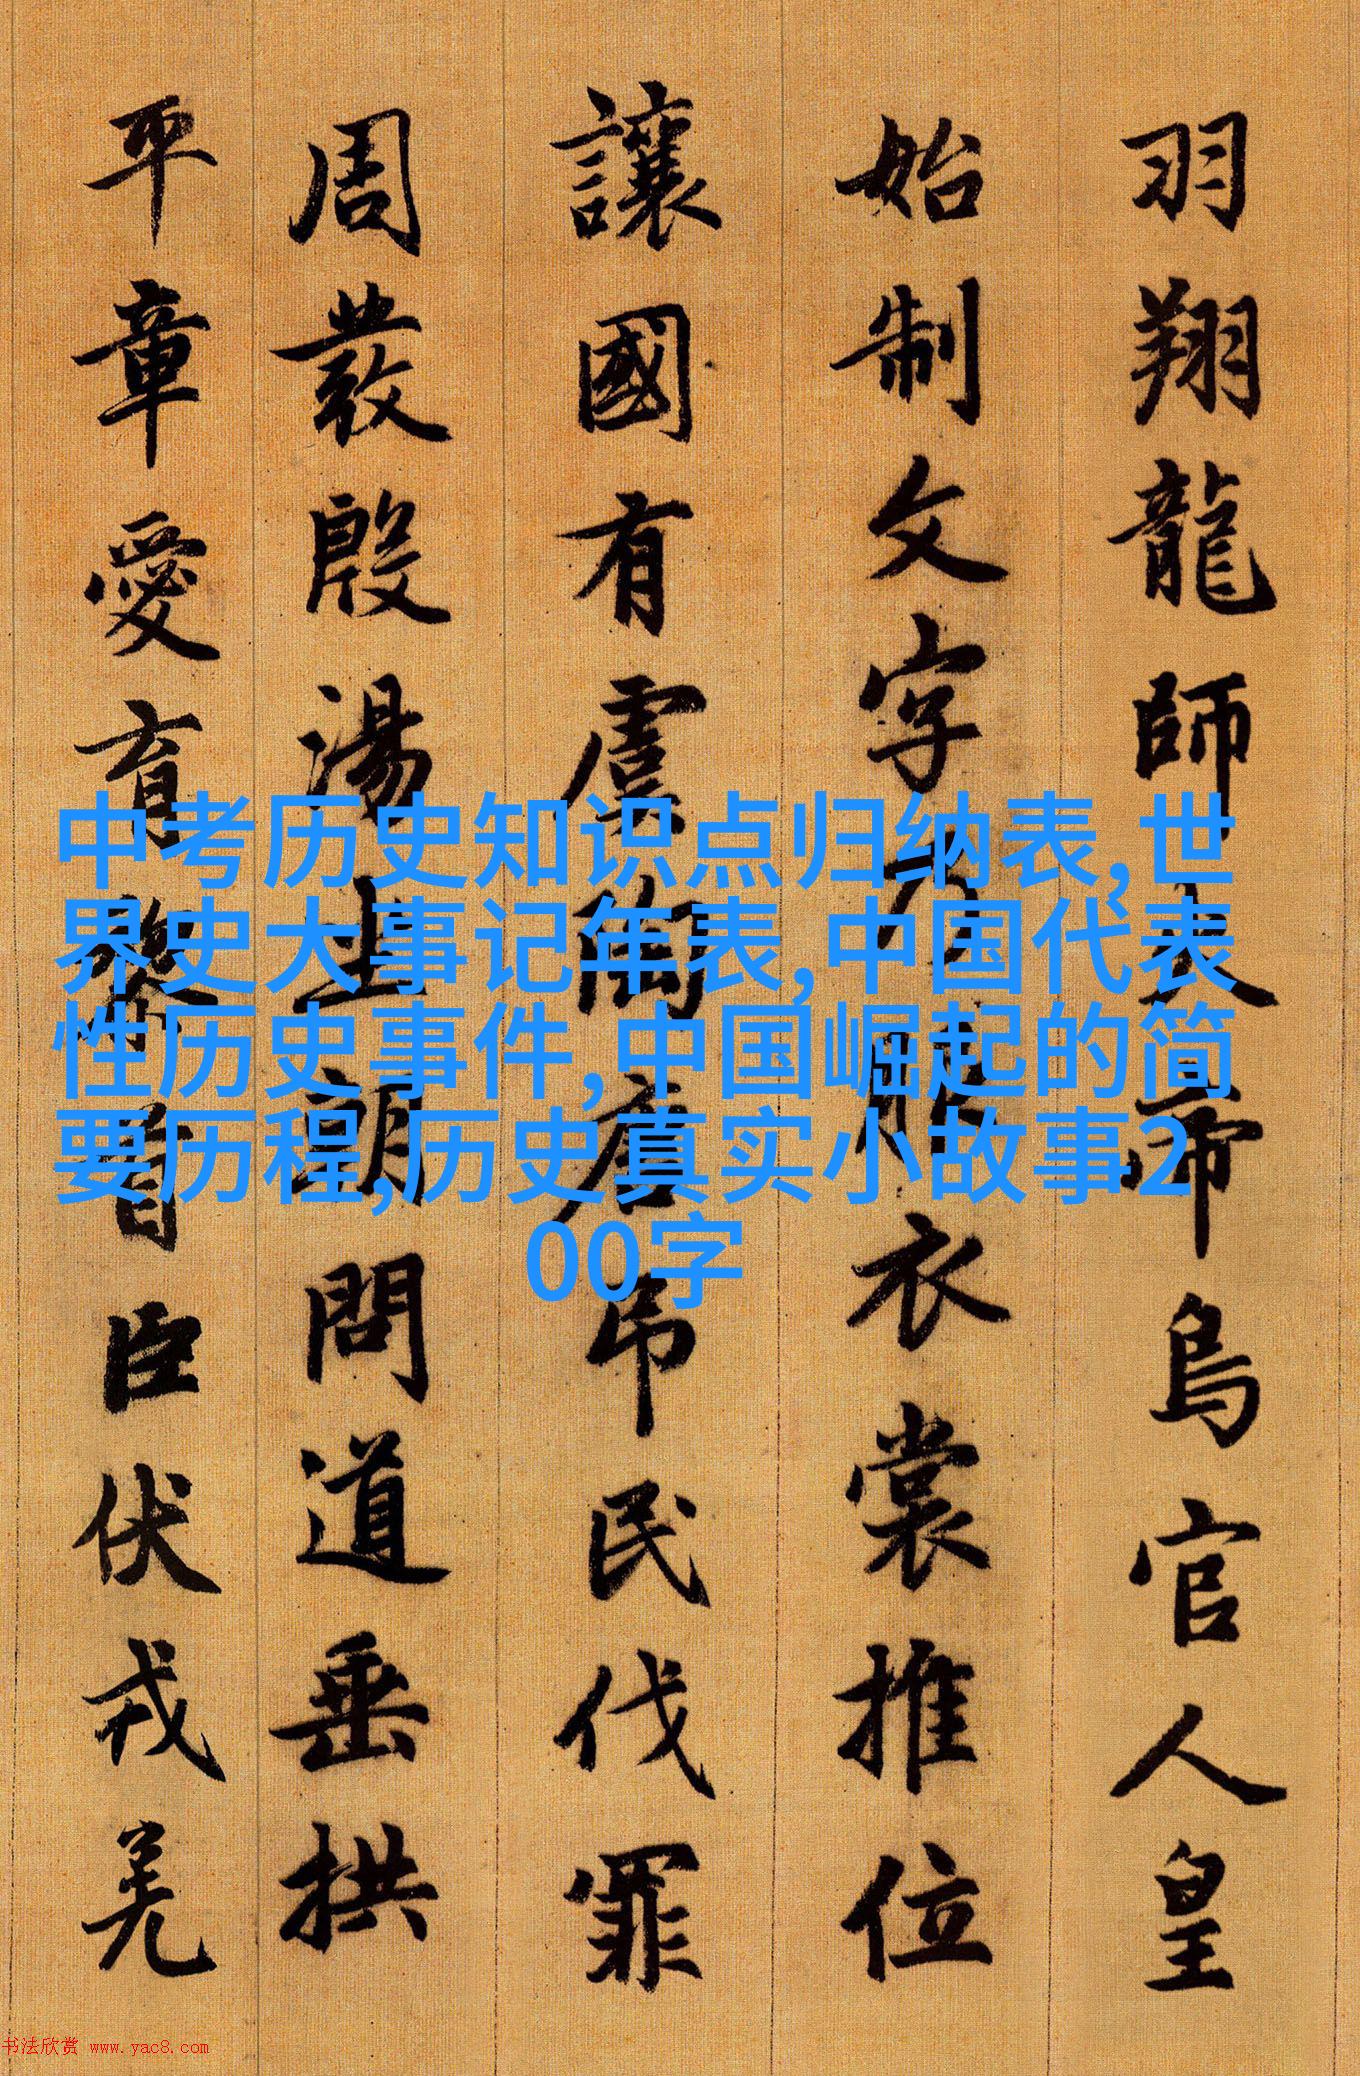 羽翔龍師火帝鳥官人皇
始制文字乃服衣裳推位
讓國有虞陶唐吊民伐罪
周發殷湯坐朝問道垂拱
平章愛育黎首臣伏戎羌
中考历史知识点归纳表,世
界史大事记年表,中国代表
性历史事件,中国崛起的简
要历程,历史真实小故事2
00字
书法欣赏 www.yac8.com